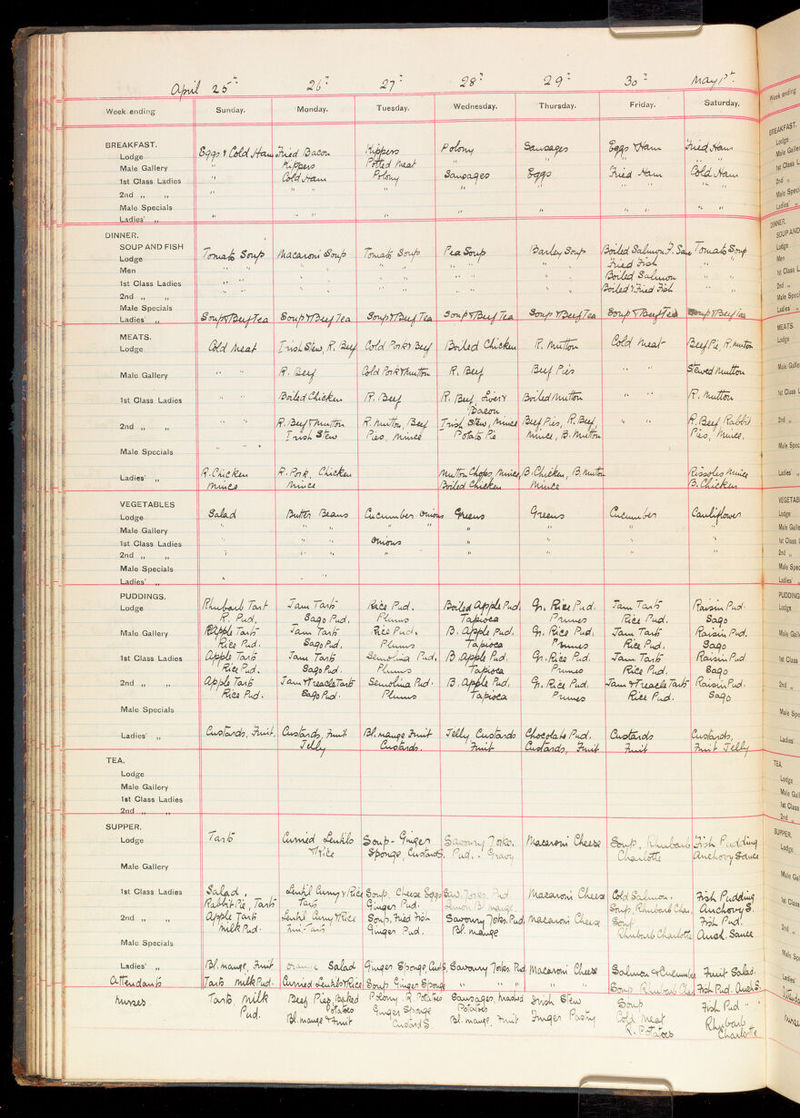 April 25th 26th 27th 28th 29th 30th May 1st
Week ending Sunday. Monday. Tuesday. Wednesday. Thursday. Friday. Saturday.
BREAKFAST.
Lodge Eggs & Cold Ham Fried Bacon Kippers Polony Sausages Eggs & Ham Fried Ham
Male Gallery " Kippers Potted Meat " " " "
1st Class Ladies " Cold Ham Polony Sausages Eggs Fried Ham Cold Ham
2nd " " " " " " " "
Male Specials
Ladies' " " " " " " " "
DINNER.
SOUP AND FISH
Lodge Tomato Soup Macaroni Soup Tomato Soup Pea Soup Barley Soup Boiled Salmon P. Sauce Tomato Soup
Men " " " " " " " " " " Fried Fish " "
1st Class Ladies " " " " " " " " Boiled Salmon " "
2nd " " " " " " " " " Boiled & Fried Fish " "
Male Specials
Ladies' " Soup & Beef Tea Soup & Beef Tea Soup & Beef Tea Soup & Beef Tea Soup & Beef Tea Soup & Beef Tea Soup & Beef Tea
MEATS.
Lodge Cold Meat Irish Stew, R. Beef Cold Pork & Beef Boiled Chicken R. Mutton Cold Meat Beef Pie, R. Mutton
Male Gallery " " R. Beef Cold Pork & Mutton R. Beef Beef Pies " " Stewed Mutton
1st Class Ladies " " Boiled Chicken R. Beef R. Beef, Liver & Bacon Boiled Mutton " " R. Mutton
2nd " " " " R. Beef & Mutton R. Mutton, Beef Irish Stew, Mince Beef Pies, R. Beef, " " R. Beef Rabbit
Irish Stew Pies, Mince Potato Pie Mince, B. Mutton Pies, Mince,
Male Specials " "
Ladies' " R. Chicken R. Pork, Chicken Mutton Chops, Mince, B. Chicken, B. Mutton Rissoles Mince
Mince Mince Boiled Chicken Mince B. Chicken
VEGETABLES
Lodge Salad Butter Beans Cucumber Onions Greens Greens Cucumber Cauliflower
Male Gallery " " " " " " " "
1st Class Ladies " " " Onions " " " "
2nd " " " " " " " "
Male Specials
Ladies' " " " "
PUDDINGS.
Lodge Rhubarb Tart Jam Tarts Rice Pud. Boiled Apple Pud. Gr. Rice Pud. Jam Tarts Raisin Pud.
R. Pud. Sago Pud. Plums Tapioca Prunes Rice Pud. Sago
Male Gallery Apple Tarts Jam Tarts Rice Pud. B. Apple Pud. Gr. Rice Pud. Jam Tarts Raisin Pud.
Rice Pud. Sago Pud. Plums Tapioca Prunes Rice Pud. Sago
1st Class Ladies Apple Tarts Jam Tarts Semolina Pud. B. Apple Pud. Gr. Rice Pud. Jam Tarts Raisin Pud.
Rice Pud. Sago Pud. Plums Tapioca Prunes Rice Pud. Sago
2nd " " Apple Tarts Jam & Treacle Tarts Semolina Pud. B. Apple Pud. Gr. Rice Pud. Jam & Treacle Tarts Raisin Pud.
Rice Pud. Sago Pud. Plums Tapioca Prunes Rice Pud. Sago
Male Specials
Ladies' " Custards, Fruit. Custards, Fruit Bl. mange Fruit Jelly, Custards Chocolate Pud. Custards Custards,
Jelly Custards. Fruit Custards, Fruit Fruit Fruit Jelly
TEA.
Lodge
Male Gallery
1st Class Ladies
2nd " "
SUPPER.
Lodge Tarts Curried Lentils Soup - Ginger Savoury Yorks. Macaroni Cheese Soup, Rhubarb Fish Pudding
& Rice Sponge, Custards. Pud. Gravy Charlotte Anchovy Sauce
Male Gallery
1st Class Ladies Salad. Lentil Curry & Rice Soup, Cheese Eggs Sav. Yorks. Pud Macaroni Cheese Cold Salmon. Fish Pudding
Rabbit Pie, Tarts Tarts Ginger Pud. Lemon Bl. mange Soup, Rhubarb Char. Anchovy S.
2nd " " Apple Tarts Lentil Curry & Rice Soup, Fried Fish Savoury Yorks. Pud Macaroni Cheese Soup Fish Pud.
Milk Pud. Fruit Tarts Ginger Pud. Bl. mange Rhubarb Charlotte Anch. Sauce
Male Specials
Ladies' " Bl. mange, Fruit Orange Salad Ginger Sponge, Custs. Savoury Yorks. Pud Macaroni Cheese Salmon & Cucumber Fruit Salad.
Attendants Tarts Milk Pud. Curried Lentils & Rice Soup Ginger Sponge " " " " Soup Rhubarb Char. Fish Pud. Anch. S.
Nurses Tarts Milk Beef Pies, baked Polony. R Potatoes Sausages, mashed Irish Stew Soup Fish Pud " "
Pud. Potatoes Ginger Sponge Potatoes Finger Pastry Cold Meat Rhubarb
Bl. mange & Fruit Custards Bl. mange, Fruit R. Potatoes Charlotte